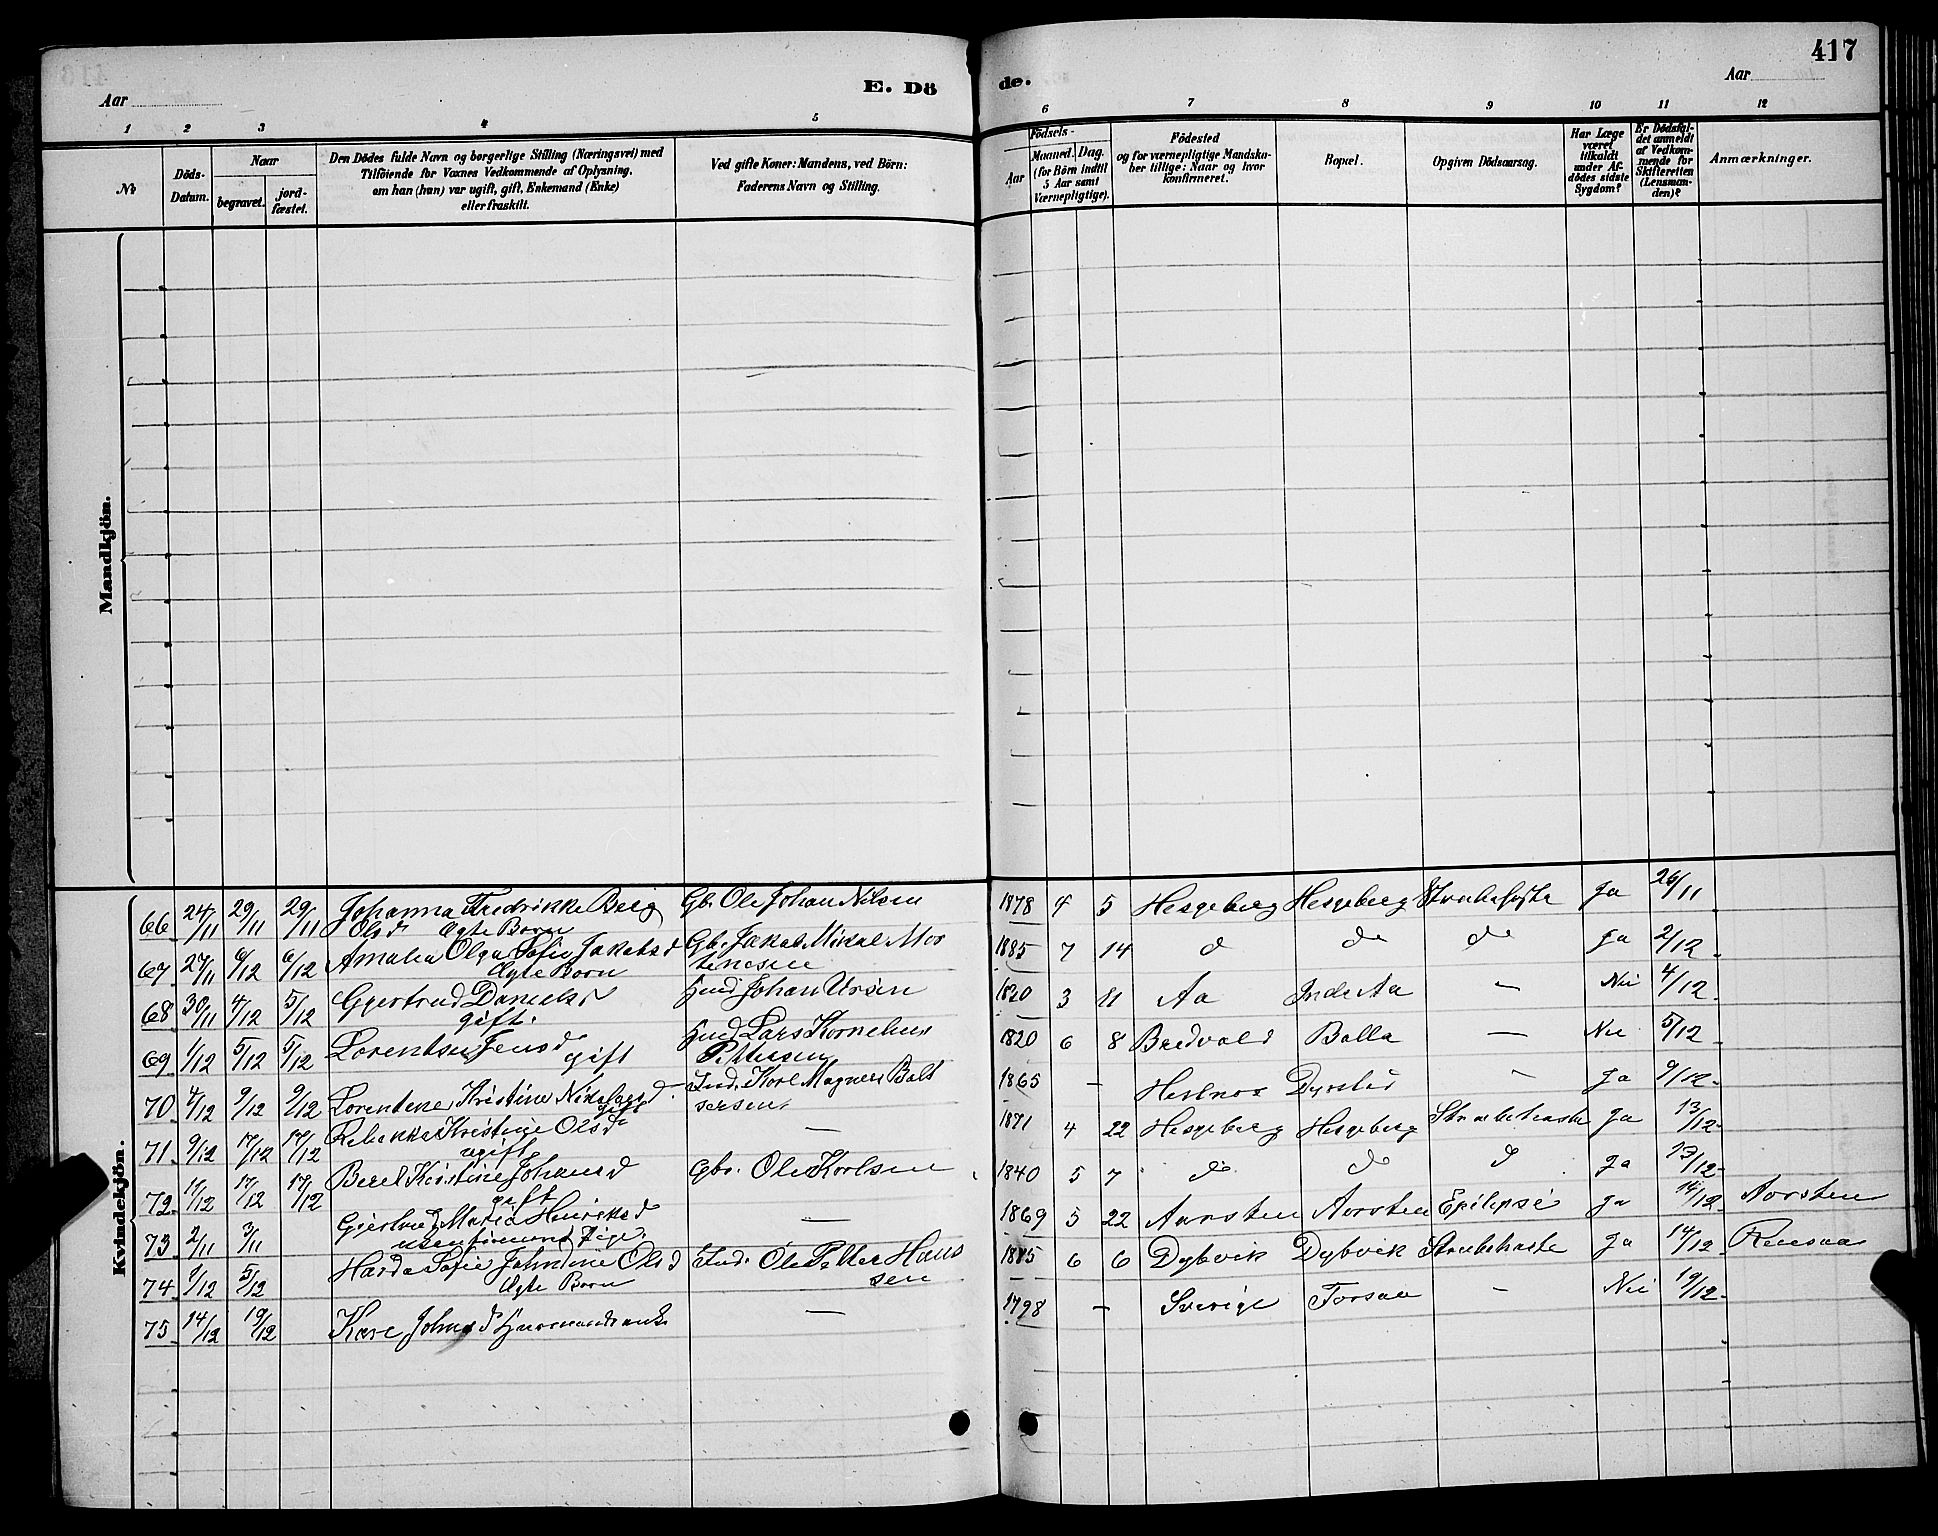 417
Aar
E. Dö
de.
Aar
1 2 3 4 5 6 7 8 9 10 11 12
No
Döds-Datum.
Naar
begravet.
jord-fæstet.
Den Dödes fulde Navn og borgerlige Stilling (Næringsvei) med
Tilföiende for Voxnes Vedkommende af Oplysning,
om han (hun) var ugift, gift, Enkemand (Enke)
eller fraskilt.
Ved gifte Koner: Mandens, ved Börn:
Faderens Navn og Stilling.
Födsels-
Aar
Maaned. Dag.
(for Börn indtil
5 Aar samt
Værnepligtige).
Födested
og for værnepligtige Mandska-
ber tillige: Naar og hvor
konfirmeret.
Bopæl.
Opgiven Dödsaarsag.
Har Læge
været
tilkaldt
under Af-
dödes sidste
Sygdom?
Er Dödsfal-
det anmeldt
af Vedkom-
mende for
Skifteretten
(Lensman-
den)?
Anmærkninger.
Mandkjön.
Kvindekjön.
66 24/11 29/11 29/11 Johanna Fredrikke Berg Gbr. Ole Johan Nilsen 1878 4 5 Hesgeberg Hesgeberg Ja 26/11
Olsd Ægte Barn
67 27/11 6/12 6/12 Amalia Olga Sofie Jakobsd Gb. Jakob Mikal Mor 1885 7 14 d do do Ja 2/12
Ægte Barn tenesen
68 30/11 4/12 5/12 Gjertrud Danielsd Johan Ursin 1820 3 11 Aa Indr Aa — Nei 4/12
gift.
69 1/12 5/12 5/12 Lorentse Jensd gift Lars Kornelius 1820 6 8 Bredvold Balla — Nei 5/12
Pettersen
70 4/12 9/12 9/12 Lorentine Kristine Nikolaisd Ind. Karl Magnus Balt 1865 — Hesnes Dyrstad — Ja 9/12
gift sersen
71 9/12 17/12 17/12 Rebekka Kristine Olsd — 1871 4 22 Hesgeberg Hesgeberg Strubehoste Ja 13/12
ugift
72 11/12 17/12 17/12 Beret Kristine Johansd Gbr. Ole Karlsen 1840 5 7 do do d Ja 13/12
gift
73 2/11 3/11 Gjertrud Maria Henriksd — 1869 5 22 Aarsten Aarsten Epilepsi Ja 14/12 Aarsten
Pige
74 1/12 5/12 Harda Sofie Johntine Olsd Ind. Ole Petter Hans 1885 6 6 Dybvik Dybvik Strubehoste Ja 14/12 Rensaa
Ægte Barn sen
75 14/12 19/12 Kare Johnsd — 1798 — Sverige Forsaa — Nei 19/12